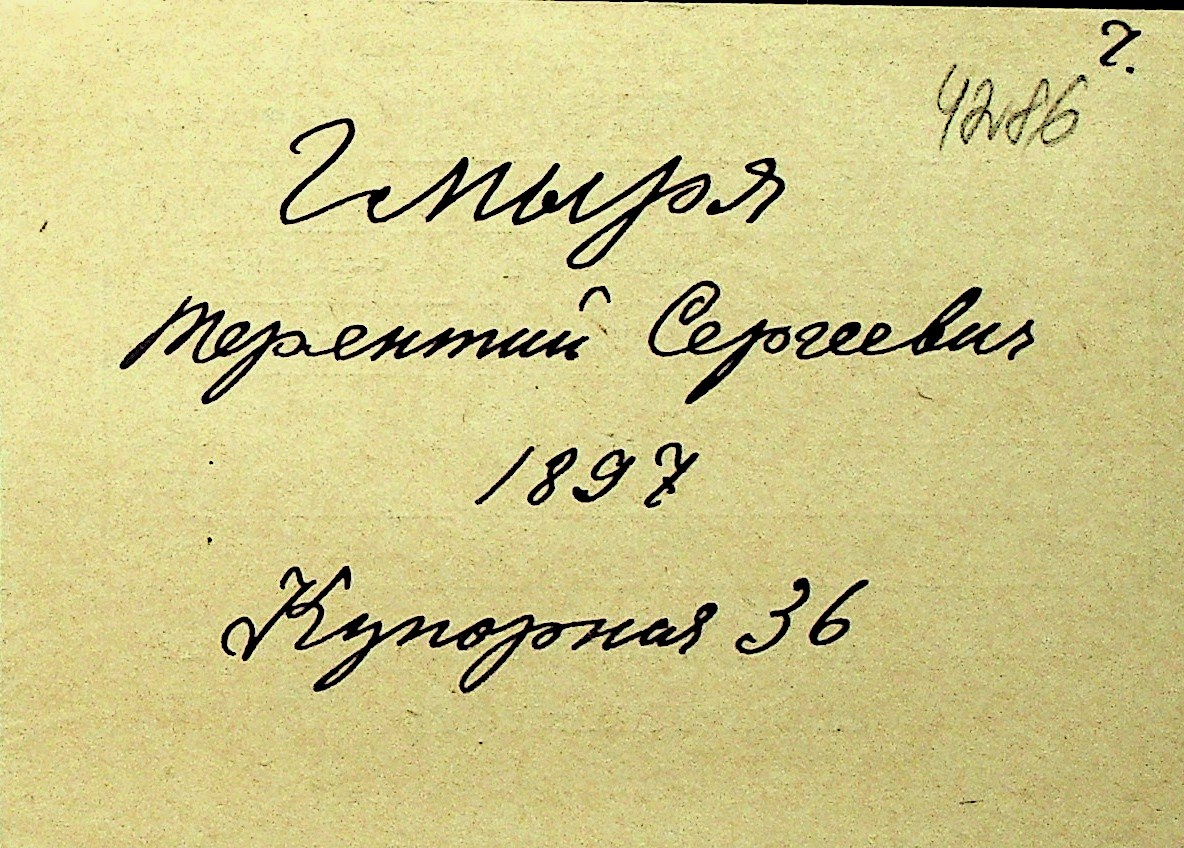 г.
4286
Гмыря
Терентий Сергеевич
1897
Купорная 36